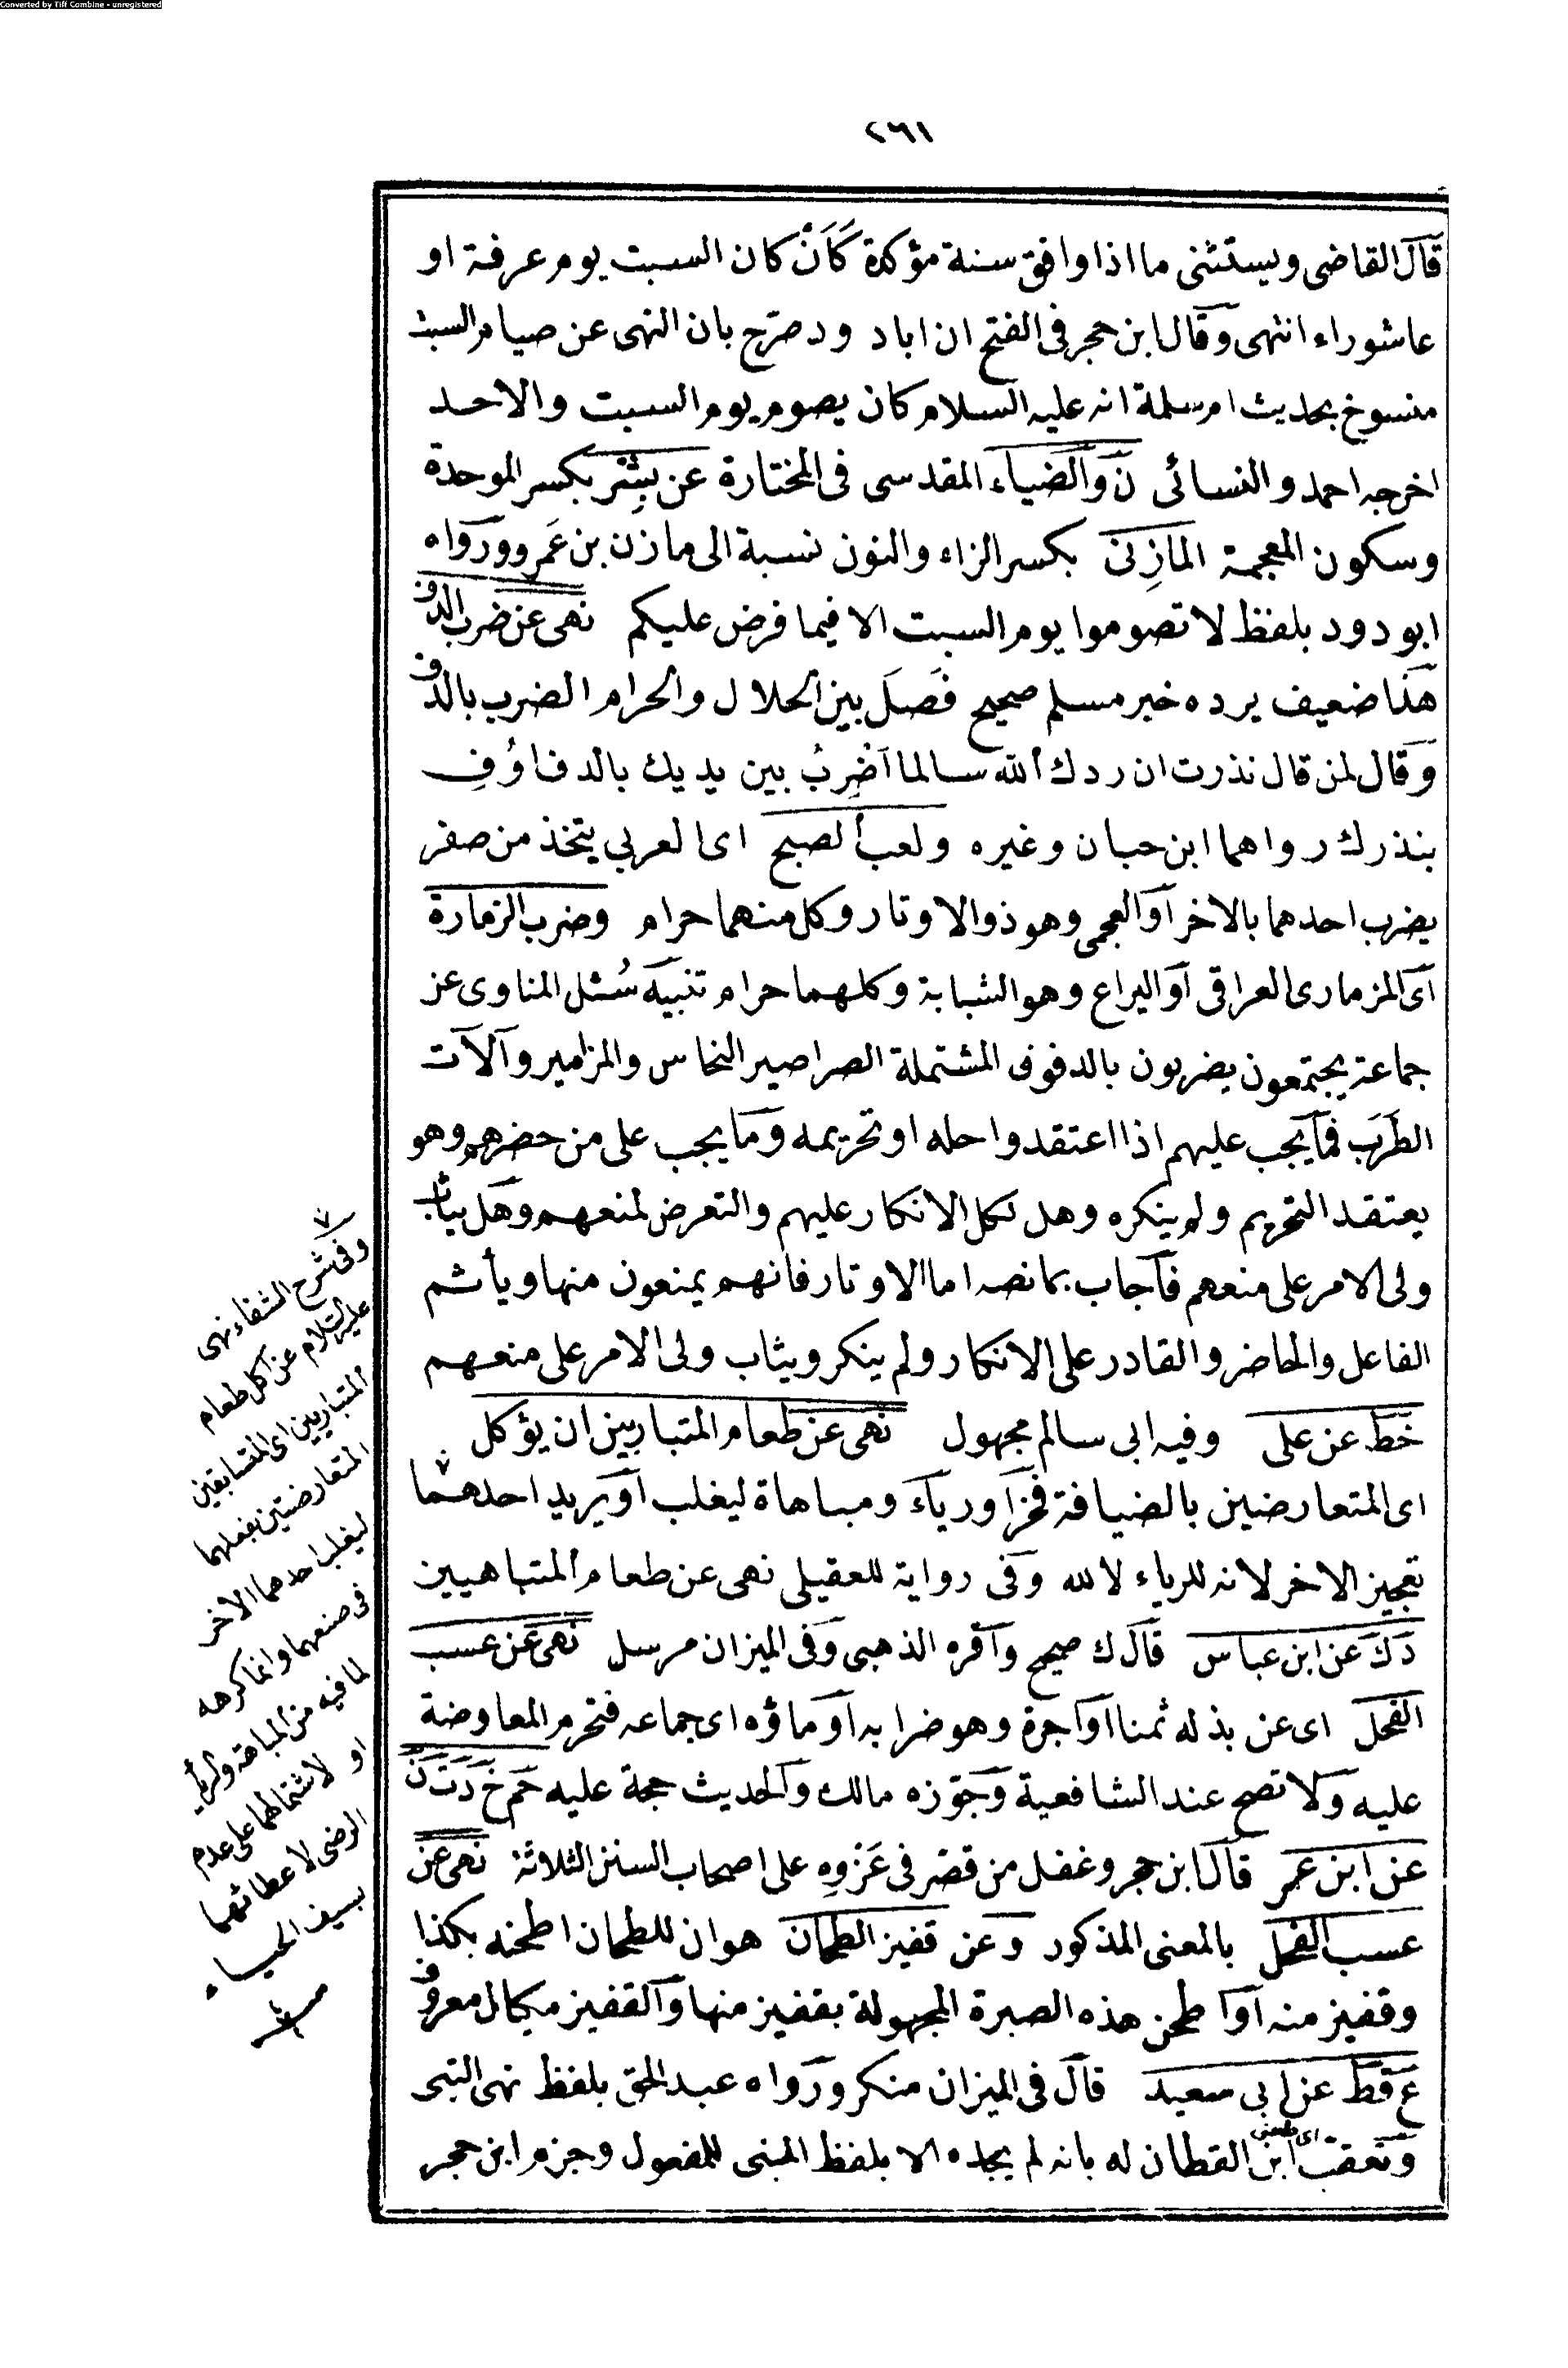 Converted by Tiff Combine - unregistered
٢٦١
قال القاضى ويستثنى ما اذا وافق سنة مؤكدة كَاَنْ كان السبت يوم عرفة او
عاشوراء انتهى وقال ابن حجر فى الفتح ان اباد ود صرّح بان النهى عن صيام السبت
منسوخ بحديث ام سلمة انه عليه السلام كان يصوم يوم السبت والاحد
اخرجه احمد والنسائى ن والضياء المقدسى فى المختارة عن بِشْر بكسر الموحدة
وسكون المعجمة المازِنى بكسر الزاء والنون نسبة الى مازن بن عَمرو ورواه
ابو دود بلفظ لا تصوموا يوم السبت الا فيما فرض عليكم نهى عن ضرب الدف
هذا ضعيف يرده خبر مسلم صحيح فَصَلَ بين الحلال والحرام الضرب بالدف
وقال لمن قال نذرت ان ردك الله سالما اَضْرِبُ بين يديك بالدف اَوْفِ
بنذرك رواهما ابن حبان وغيره ولعب الصبح اى العربي يتخذ من صفر
يضرب احدهما بالاخر او العجمى وهو ذو الاوتار وكل منهما حرام وضرب الزمارة
اى المزمارى العراقى او اليراع وهو الشبابة وكلهما حرام تنبيه سُئل المناوى عن
جماعة يجتمعون يضربون بالدفوف المشتملة الصراصير النحاس والمزامير وآلات
الطَرَب فما يجب عليهم اذا اعتقدوا حله او تحريمه وما يجب على من حضرهم وهو
يعتقد التحريم ولم ينكره وهل لكل الانكار عليهم والتعرض لمنعهم وهل يثاب
ولى الامر على منعهم فاجاب بما نصه اما الاوتار فانهم يمنعون منها ويأثم
الفاعل والحاضر والقادر على الانكار ولم ينكر ويثاب ولى الامر على منعهم
خط عن على وفيه ابى سالم مجهول نهى عن طعام المتباريين ان يؤكل
اى المتعارضين بالضيافة فخرا ورياء ومباهاة ليغلب او يريد احدهما ٧
تعجيز الاخر لانه للرياء لا لله وفى رواية للعقيلى نهى عن طعام المتباهيين
د ك عن ابن عباس قال ك صحيح واقره الذهبى وفى الميزان مرسل نهى عن عسب
الفحل اى عن بذله ثمنا او اجرة وهو ضرابه او ماؤه اى جماعه فتحرم المعاوضة
عليه ولا تصح عند الشافعية وجوّزه مالك والحديث حجة عليه حم خ د ت ن
عن ابن عمر قال ابن حجر وغفل من قصر فى عَزْوِهِ على اصحاب السنن الثلاثة نهى عن
عسب الفحل بالمعنى المذكور وعن قفيز الطحان هو ان للطحان اطحنه بكذا
وقفيز منه او اطحن هذه الصبرة المجهولة بقفيز منها والقفيز مكيال معروف
ع قط عن ابى سعيد قال فى الميزان منكر ورواه عبد الحق بلفظ نهى النبى
وتعقبّ ابن القطان له بانه لم يجده الا بلفظ المبنى للمفعول وجزم ابن حجر
٧
وفى شرح الشفاء نهى
عليه السلام عن كل طعام
المتباريين اى المتسابقين
المتعارضين بفعلهما
ليغلب احدهما الاخر
فى صنعهما وانما كرهه
لما فيه من المباهة والرياء
او لاشتمالهما على عدم
الرضى لاعطائهما
بسيف الحياء